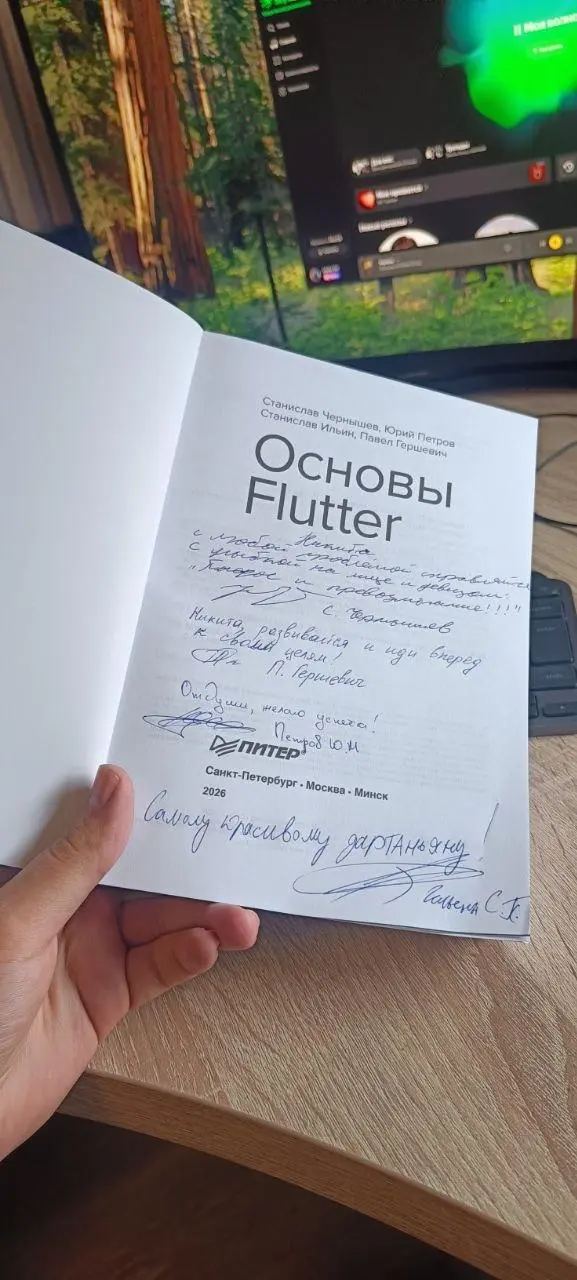 Моя волна
Станислав Чернышев, Юрий Петров
Станислав Ильин, Павел Гершевич
Основы
Flutter
Никита
с любой проблемой справляйся
с улыбкой на лице и девизом:
и превозмогание!!!"
С. Чернышев
Никита, развивайся и иди вперёд
к своим целям!
П. Гершевич
От души, желаю успеха!
Петров Ю.М
ПИТЕР
Санкт-Петербург • Москва • Минск
2026
Самому красивому дартаньяну!